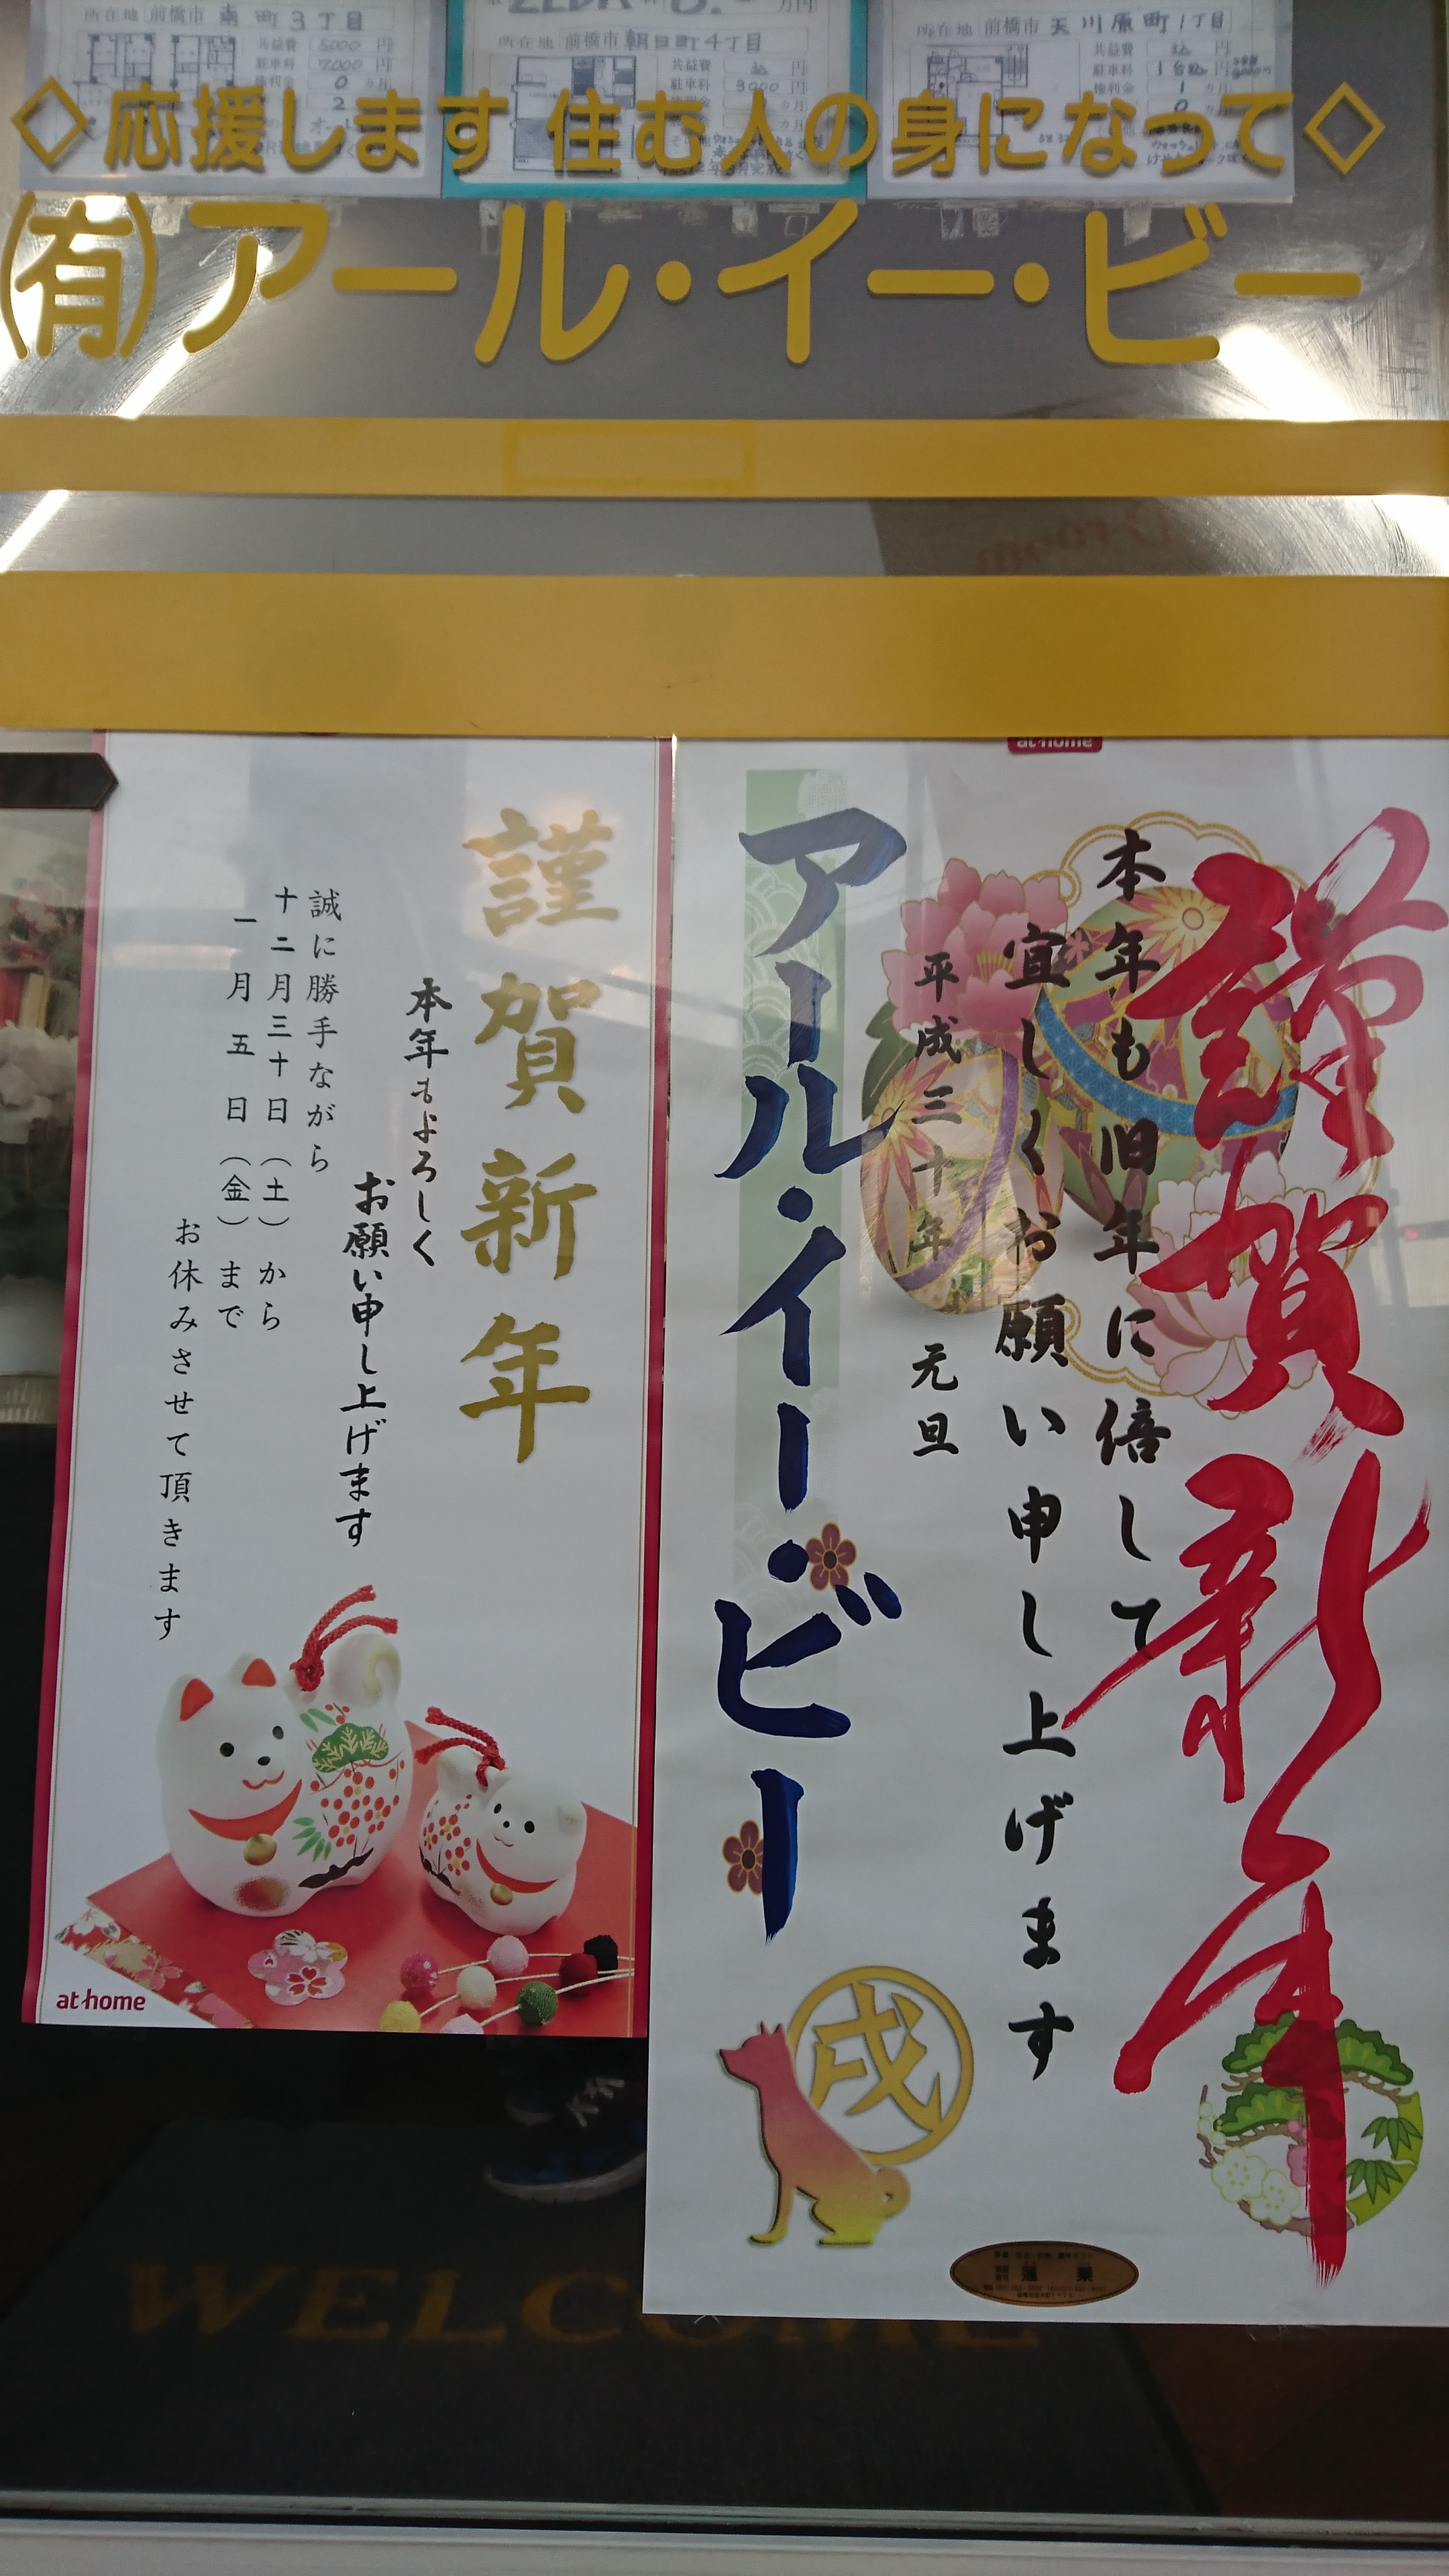 所在地 前橋市 南町3丁目
共益費 5,000 円
駐車料 7,000 円
権利金 0 ヵ月
2
2LDK
万円
所在地 前橋市 朝日町4丁目
共益費 込 円
駐車料 3,000 円
ヵ月
所在地 前橋市 天川原町1丁目
共益費 込 円
駐車料 1台込 円
権利金 1 ヵ月
0
◇応援します 住む人の身になって◇
㈲アール・イー・ビー
at home
謹賀新年
本年も旧年に倍して
宜しくお願い申し上げます
平成三十年 元旦
アール・イー・ビー
戌
謹賀新年
本年もよろしく
お願い申し上げます
誠に勝手ながら
十二月三十日（土）から
一月五日（金）まで
お休みさせて頂きます
at home
WELCOME